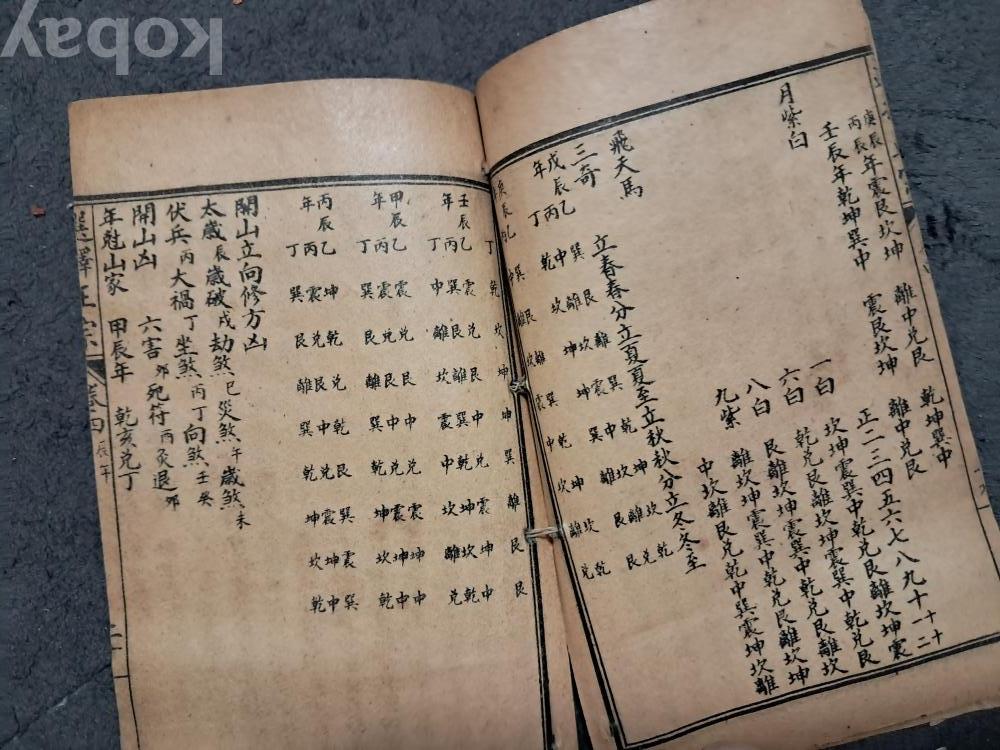 庚辰丙辰年震艮坎坤 離中兌艮 乾坤巽中
壬辰年乾坤巽中 震艮坎坤 離中兌艮
月紫白 正二三四五六七八九十十一十二
一白 坎坤震巽中乾兌艮離坎坤震
六白 乾兌艮離坎坤震巽中乾兌艮
八白 艮離坎坤震巽中乾兌艮離坎
九紫 離坎坤震巽中乾兌艮離坎坤
飛天馬 中坎離艮兌乾中巽震坤坎離
三奇 立春春分立夏夏至立秋秋分立冬冬至
戊辰年 乙丁 巽中乾 艮離坎 離坎坤 巽震坤 乾中巽 坤坎離 坎離艮 乾兌艮
庚辰年 乙丙丁
壬辰年 乙丙丁 震巽中 兌艮離 艮離坎 中巽震 兌中乾 震坤坎 坤坎離 中乾兌
甲辰年 乙丙丁 震震巽 兌兌艮 艮艮離 中中巽 兌兌乾 震震坤 坤坤坎 中中乾
丙辰年 乙丙丁 坤震巽 乾兌艮 兌艮離 乾中巽 艮兌乾 巽震坤 震坤坎 巽中乾
開山立向修方凶
太歲辰歲破戌劫煞巳災煞午歲煞未
伏兵丙大禍丁坐煞丙丁向煞壬癸
開山凶 六害卯死符丙灸退卯
年尅山家 甲辰年 乾亥兌丁
選擇正宗 卷四 辰年
kobay